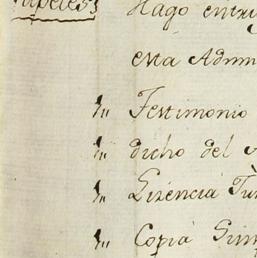 Papeles
Hago entre
esta Admi
In Testimonio
In dicho del
In Lizencia
In Copia Sim